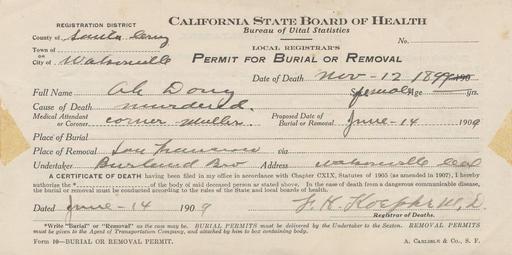 REGISTRATION DISTRICT
CALIFORNIA STATE BOARD OF HEALTH
Bureau of Vital Statistics
County of Santa Cruz
Town of
or
City of Watsonville
No.
LOCAL REGISTRAR'S
PERMIT FOR BURIAL OR REMOVAL
Date of Death Nov-12 1899
Full Name Ah Dong Age yrs.
Cause of Death murdered.
Medical Attendant or Coroner corner Muller Proposed Date of Burial or Removal June-14 1909
Place of Burial
Place of Removal San Francisco via
Undertaker Bro Address Watsonville Cal
A CERTIFICATE OF DEATH having been filed in my office in accordance with Chapter CXIX, Statutes of 1905 (as amended in 1907), I hereby
authorize the * of the body of said deceased person as stated above. In the case of death from a dangerous communicable disease,
the burial or removal must be conducted according to the rules of the State and local boards of health.
Dated June-14 1909
Registrar of Deaths.
*Write "Burial" or "Removal" as the case may be. BURIAL PERMITS must be delivered by the Undertaker to the Sexton. REMOVAL PERMITS
must be given to the Agent of Transportation Company, and attached by him to box containing body.
Form 10—BURIAL OR REMOVAL PERMIT.
A. CARLISLE & CO., S. F.